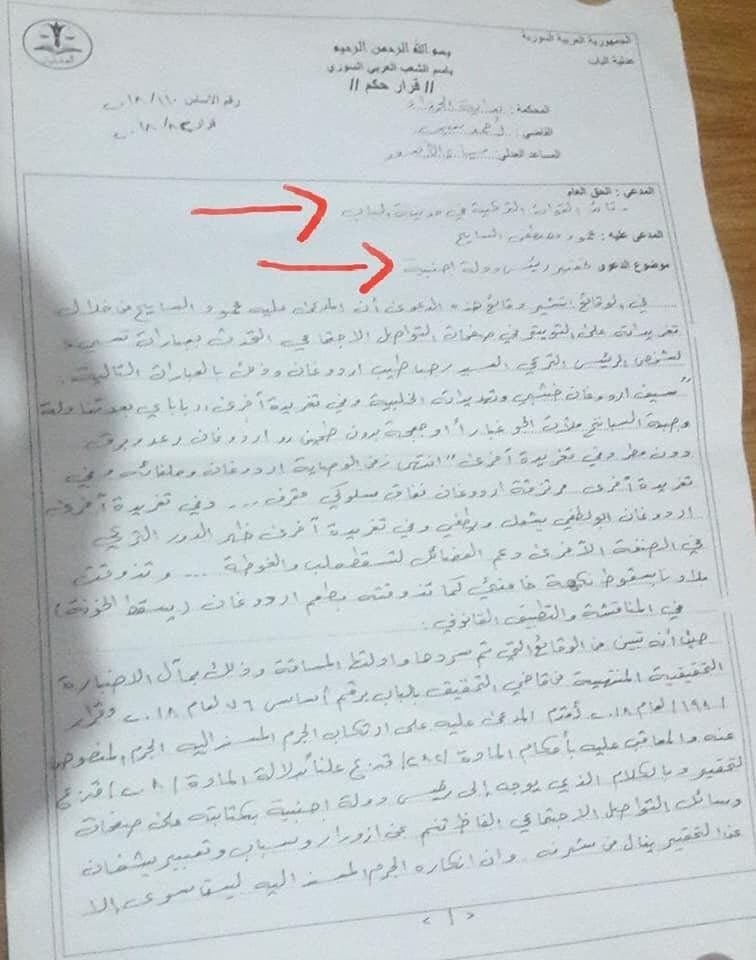 الجمهورية العربية السورية
عدلية الباب
بسم الله الرحمن الرحيم
باسم الشعب العربي السوري
// قرار حكم //
المحكمة: بداية الجزاء
رقم الأساس ١١٠/٢٠١٨
القاضي: أحمد
قرار
المساعد العدلي:
المدعي: الحق العام
القوات التركية في مدينة الباب
المدعى عليه: محمود مصطفى السايح
موضوع الدعوى تحقير رئيس دولة اجنبية
في الوقائع: تشير وقائع هذه الدعوى أن المدعى عليه محمود السايح من خلال
تغريدات على التويتر في صفحات التواصل الاجتماعي أقدم بعبارات تسيء
لشخص الرئيس التركي السيد رجب طيب اردوغان وذلك بالعبارات التالية:
"سيف اردوغان خشبي وتهديدات خلبية وفي تغريدة أخرى
ملأت الجو غباراً أو جعجعة بدون طحين اردوغان رعد وبرق
دون مطر وفي تغريدة أخرى "انتهى زمن الوصاية اردوغان وفي
تغريدة أخرى مرتزقة اردوغان نفاق سلوكي مقرف ... وفي تغريدة أخرى
اردوغان الوطفي يشعل ويطفي وفي تغريدة أخرى ظهر الدور التركي
في الصفقة الأخرى دعم الفصائل لتسقط حلب والغوطة ... وتذوقت
بلادنا بسقوط نكهة كما تذوقته بطعم اردوغان (يسقط الخونة)
في المناقشة والتطبيق القانوني:
حيث أنه تبين من الوقائع التي تم سردها وأدلتها المساقة وذلك بمآل الاضبارة
التحقيقية المنتهية من قاضي التحقيق بالباب برقم أساس ٧٦ لعام ٢٠١٨ وقرار
/١٩٨/ لعام ٢٠١٨ أقدم المدعى عليه على ارتكاب الجرم المسند اليه الجرم المنصوص
عنه والمعاقب عليه بأحكام المادة /٢٨٢/ ق.ع علناً بدلالة المادة /٢٠٨/ ق.ع
لتحقير وبالكلام الذي يوجه إلى رئيس دولة اجنبية بكتابته على صفحات
وسائل التواصل الاجتماعي الفاظ تنم عن ازورار وسباب وتعبير يشفان
عن التحقير ينال من شرفه. وان انكاره الجرم المسند اليه ليست سوى إلا
< ١ >